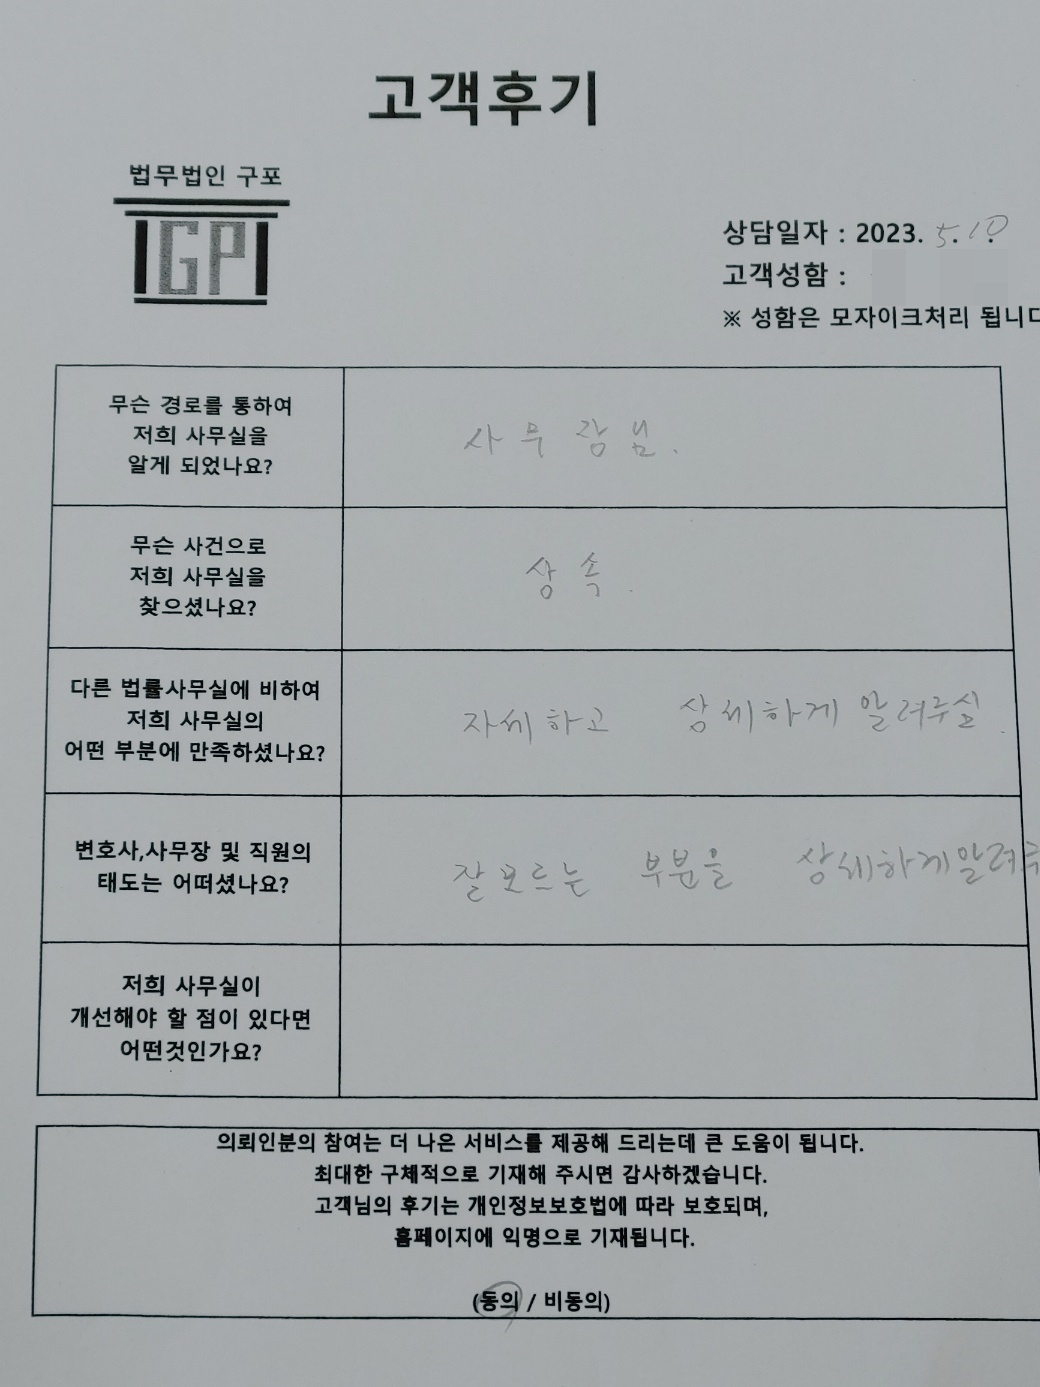 고객후기
법무법인 구포
IGPI
상담일자 : 2023. 5. 10
고객성함 :
※ 성함은 모자이크처리 됩니다
무슨 경로를 통하여
저희 사무실을
알게 되었나요?
사무장님.
무슨 사건으로
저희 사무실을
찾으셨나요?
상속.
다른 법률사무실에 비하여
저희 사무실의
어떤 부분에 만족하셨나요?
자세하고 상세하게 알려주심.
변호사,사무장 및 직원의
태도는 어떠셨나요?
잘모르는 부분을 상세하게알려주
저희 사무실이
개선해야 할 점이 있다면
어떤것인가요?
의뢰인분의 참여는 더 나은 서비스를 제공해 드리는데 큰 도움이 됩니다.
최대한 구체적으로 기재해 주시면 감사하겠습니다.
고객님의 후기는 개인정보보호법에 따라 보호되며,
홈페이지에 익명으로 기재됩니다.
(동의 / 비동의)